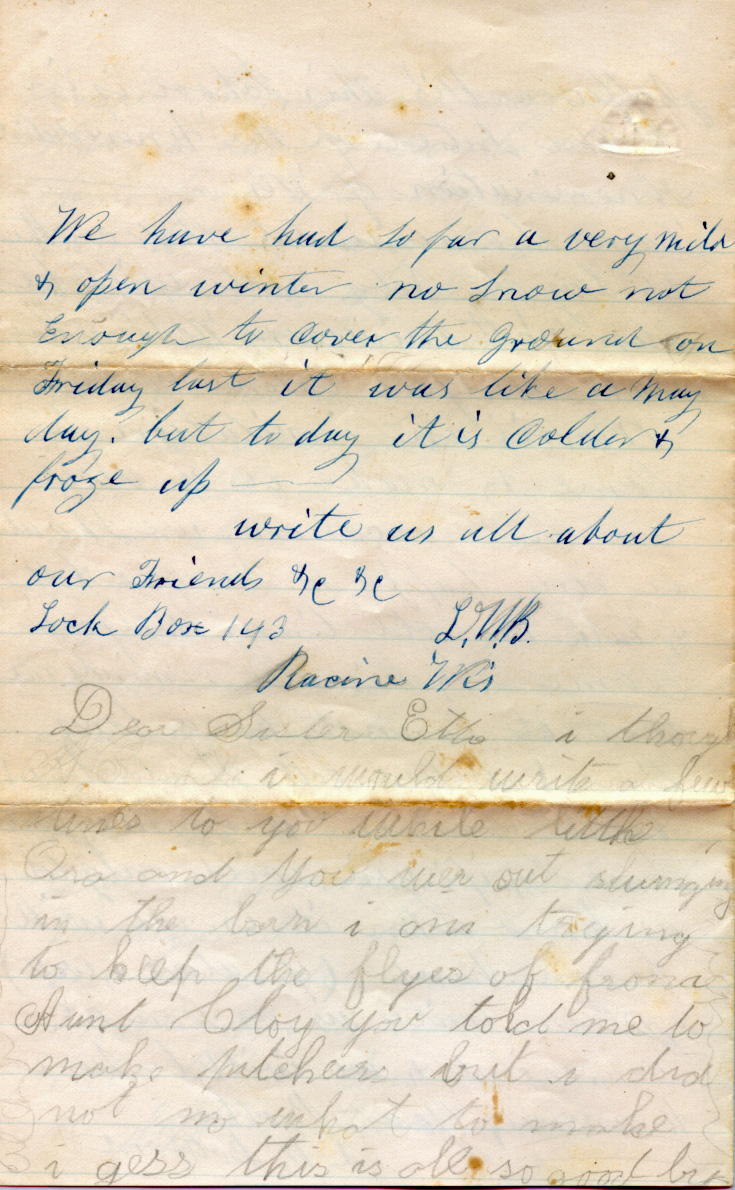 We have had so far a very mild
& open winter no snow not
Enough to cover the Ground on
Friday last it was like a May
day. but to day it is Colder &
froze up —
write us all about
our Friends &c &c
Lock Box 143 L.W.B.
Racine Wis
Dear Sister Etta i thoug
i would write a few
lines to you while little
Ora and You wer out
in the barn i am trying
to keep the flyes of from
Aunt Cloy you told me to
make pitchers but i did
not no what to make
i gess this is all so good by